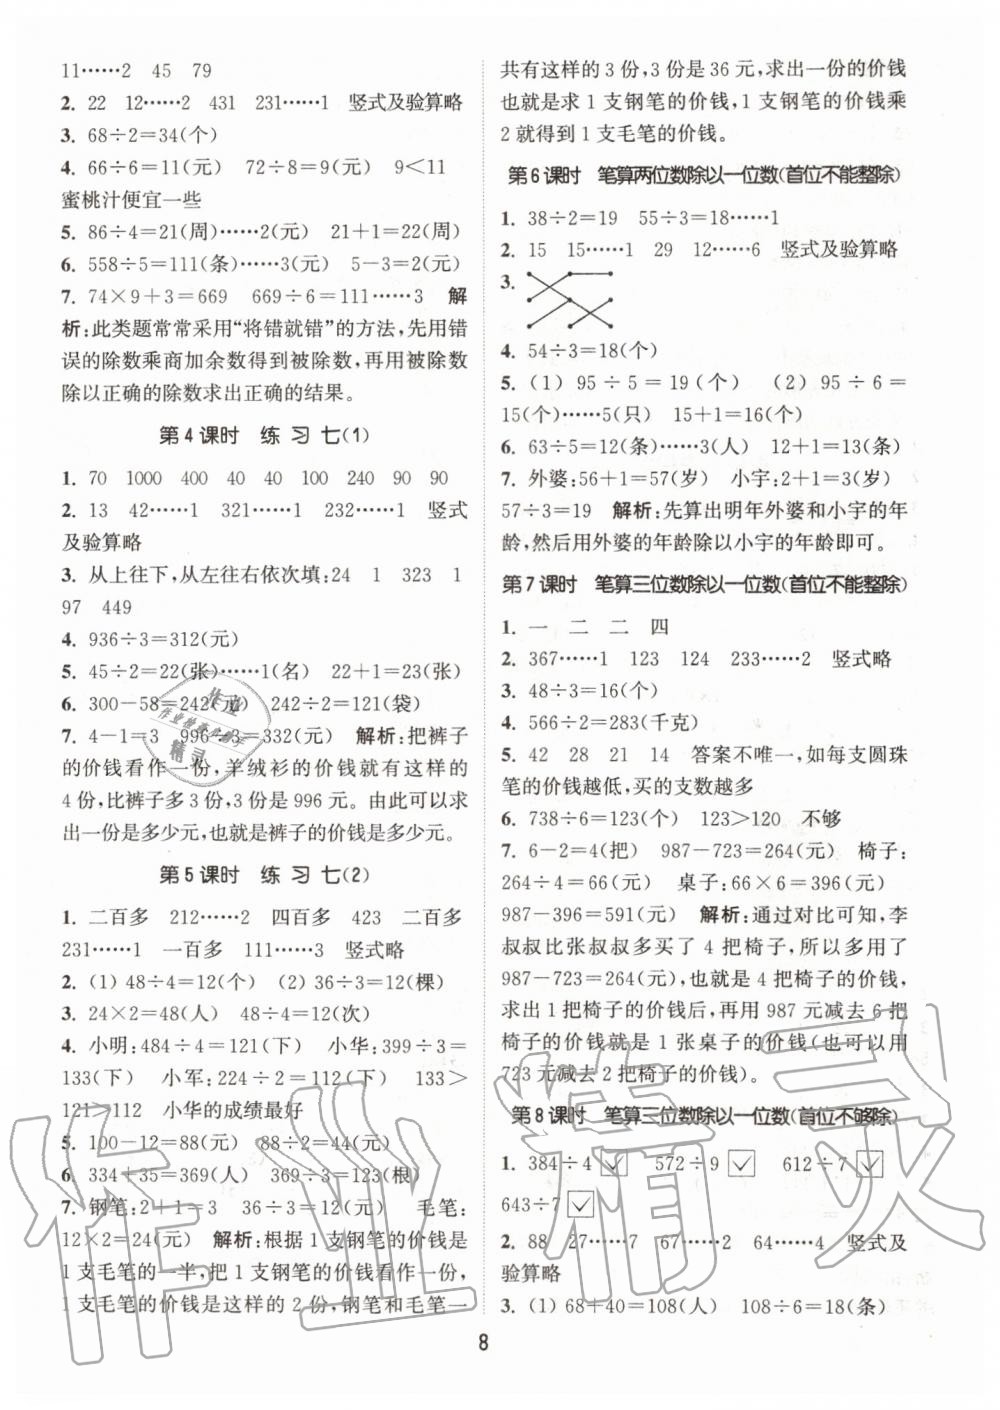 11……2　45　79
2. 22　12……2　431　231……1　竖式及验算略
3. 68÷2=34(个)
4. 66÷6=11(元)　72÷8=9(元)　9<11
蜜桃汁便宜一些
5. 86÷4=21(周)……2(元)　21+1=22(周)
6. 558÷5=111(条)……3(元)　5-3=2(元)
7. 74×9+3=669　669÷6=111……3　解
析:此类题常常采用“将错就错”的方法,先用错
误的除数乘商加余数得到被除数,再用被除数
除以正确的除数求出正确的结果。
第 4 课时　练 习 七(1)
1. 70　1000　400　40　40　100　240　90　90
2. 13　42……1　321……1　232……1　竖式
及验算略
3. 从上往下,从左往右依次填:24　1　323　1
97　449
4. 936÷3=312(元)
5. 45÷2=22(张)……1(名)　22+1=23(张)
6. 300-58=242(元)　242÷2=121(袋)
7. 4-1=3　996÷3=332(元)　解析:把裤子
的价钱看作一份,羊绒衫的价钱就有这样的
4份,比裤子多3份,3份是996元。由此可以求
出一份是多少元,也就是裤子的价钱是多少元。
第 5 课时　练 习 七(2)
1. 二百多　212……2　四百多　423　二百多
231……1　一百多　111……3　竖式略
2. (1) 48÷4=12(个)　(2) 36÷3=12(棵)
3. 24×2=48(人)　48÷4=12(次)
4. 小明:484÷4=121(下)　小华:399÷3=
133(下)　小军:224÷2=112(下)　133>
121>112　小华的成绩最好
5. 100-12=88(元)　88÷2=44(元)
6. 334+35=369(人)　369÷3=123(根)
7. 钢笔:2+1=3　36÷3=12(元)　毛笔:
12×2=24(元)　解析:根据1支钢笔的价钱是
1支毛笔的一半,把1支钢笔的价钱看作一份,
1支毛笔的价钱是这样的2份,钢笔和毛笔一
共有这样的3份,3份是36元,求出一份的价钱
也就是求1支钢笔的价钱,1支钢笔的价钱乘
2就得到1支毛笔的价钱。
第 6 课时　笔算两位数除以一位数(首位不能整除)
1. 38÷2=19　55÷3=18……1
2. 15　15……1　29　12……6　竖式及验算略
3.
4. 54÷3=18(个)
5. (1) 95÷5=19(个)　(2) 95÷6=
15(个)……5(只)　15+1=16(个)
6. 63÷5=12(条)……3(人)　12+1=13(条)
7. 外婆:56+1=57(岁)　小宇:2+1=3(岁)
57÷3=19　解析:先算出明年外婆和小宇的年
龄,然后用外婆的年龄除以小宇的年龄即可。
第 7 课时　笔算三位数除以一位数(首位不能整除)
1. 一　二　二　四
2. 367……1　123　124　233……2　竖式略
3. 48÷3=16(个)
4. 566÷2=283(千克)
5. 42　28　21　14　答案不唯一,如每支圆珠
笔的价钱越低,买的支数越多
6. 738÷6=123(个)　123>120　不够
7. 6-2=4(把)　987-723=264(元)　椅子:
264÷4=66(元)　桌子:66×6=396(元)
987-396=591(元)　解析:通过对比可知,李
叔叔比张叔叔多买了4把椅子,所以多用了
987-723=264(元),也就是4把椅子的价钱,
求出1把椅子的价钱后,再用987元减去6把
椅子的价钱就是1张桌子的价钱(也可以用
723元减去2把椅子的价钱)。
第 8 课时　笔算三位数除以一位数(首位不够除)
1. 384÷4 ☑　572÷9 ☑　612÷7 ☑
643÷7 ☑
2. 88　27……7　67……2　64……4　竖式及
验算略
3. (1) 68+40=108(人)　108÷6=18(条)
8
作业精灵